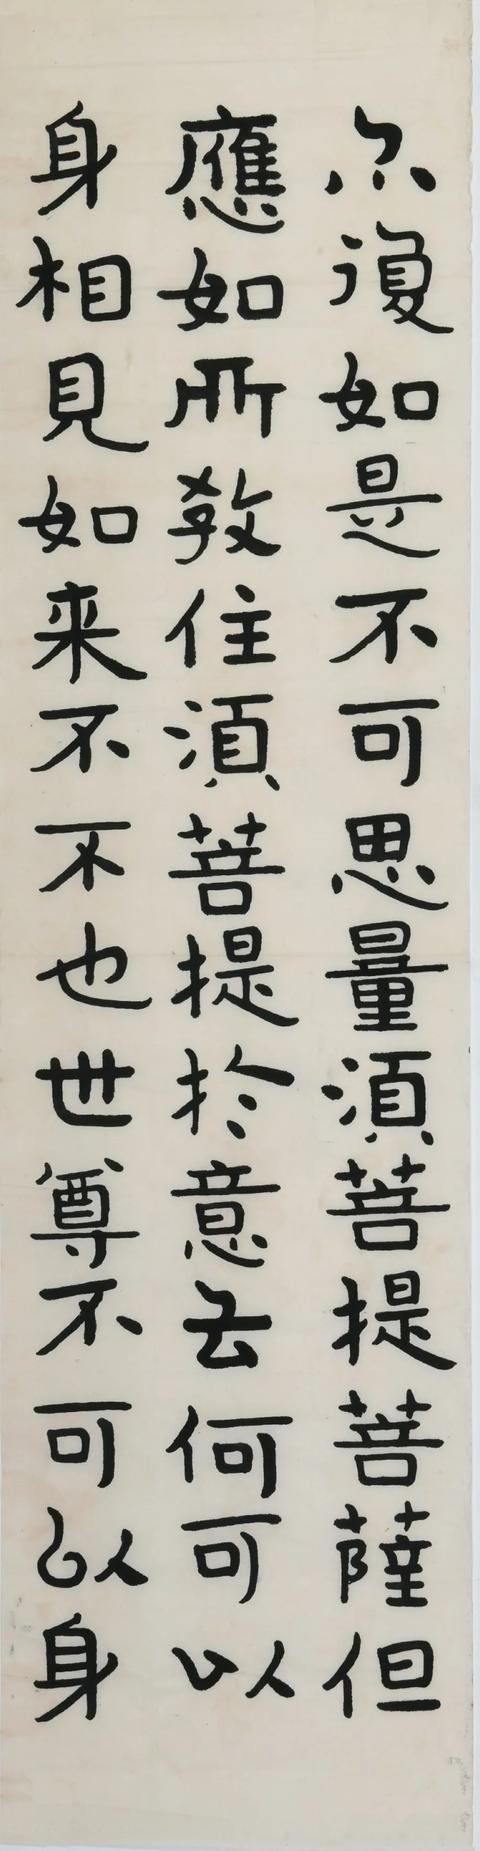 尒復如是不可思量須菩提菩薩但
應如所教住須菩提於意云何可以
身相見如来不不也世尊不可以身